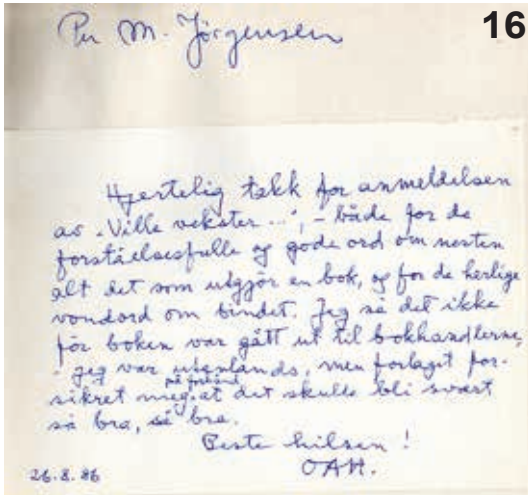 Per M. Jørgensen
16
Hjertelig takk for anmeldelsen
av „Ville vekster...", - både for de
forståelsesfulle og gode ord om nesten
alt det som utgjør en bok, og for de herlige
vondord om bindet. Jeg så det ikke
før boken var gått ut til bokhandlerne,
- jeg var utenlands, men forlaget for-
på forhånd
sikret meg at det skulle bli svært
så bra, så bra.
Beste hilsen !
OAH.
26.8.86